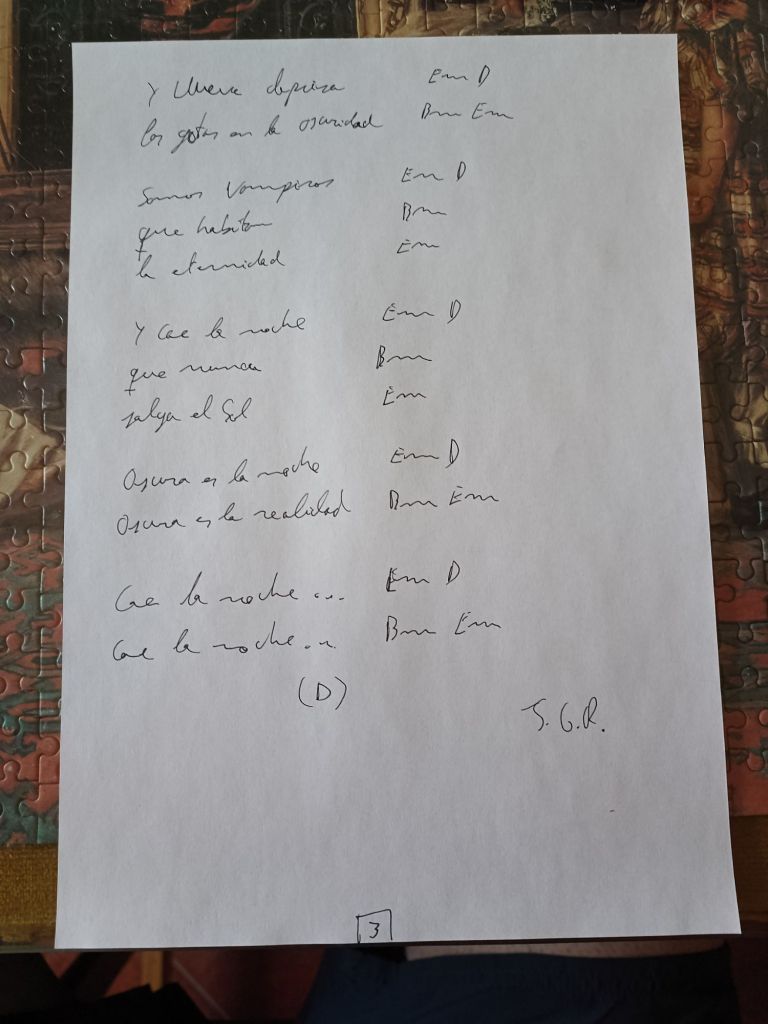 Y llueve deprisa Em D
las gotas en la oscuridad Bm Em
Somos Vampiros Em D
que habitan Bm
la eternidad Em
Y cae la noche Em D
que nunca Bm
salga el Sol Em
Oscura es la noche Em D
Oscura es la realidad Bm Em
Cae la noche... Em D
Cae la noche... Bm Em
(D)
J. G. R.
3